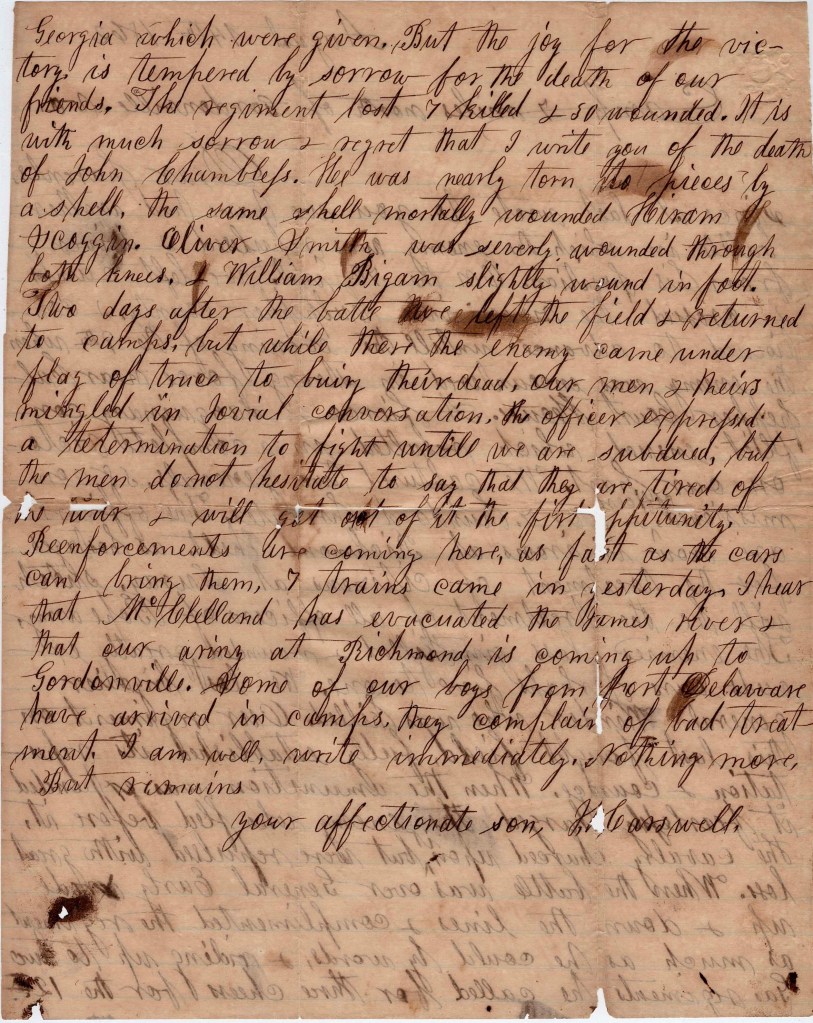 Georgia which were given. But the joy for the vic-
tory is tempered by sorrow for the death of our
friends. The regiment lost 7 killed & 30 wounded. It is
with much sorrow & regret that I write you of the death
of John Chambless. He was nearly torn to pieces by
a shell, the same shell mortally wounded Hiram
Scoggin. Oliver Smith was severly wounded through
both knees. & William Bigam slightly wound in foot.
Two days after the battle we left the field & returned
to camps, but while there the enemy came under
flag of truce to bury their dead, our men & theirs
mingled in Jovial conversation, the officer expressed
a termination to fight until we are subdued, but
the men do not hesitate to say that they are tired of
war & will get out of it the first
Reenforcements are coming here, as fast as the cars
can bring them, 7 trains came in yesterday. I hear
that McClelland has evacuated the James river &
that our army at Richmond is coming up to
Gordonville. Some of our boys from fort Delaware
have arrived in camps, they complain of bad treat
ment. I am well, write immediately. Nothing more,
But remains
your affectionate son, Carswell.